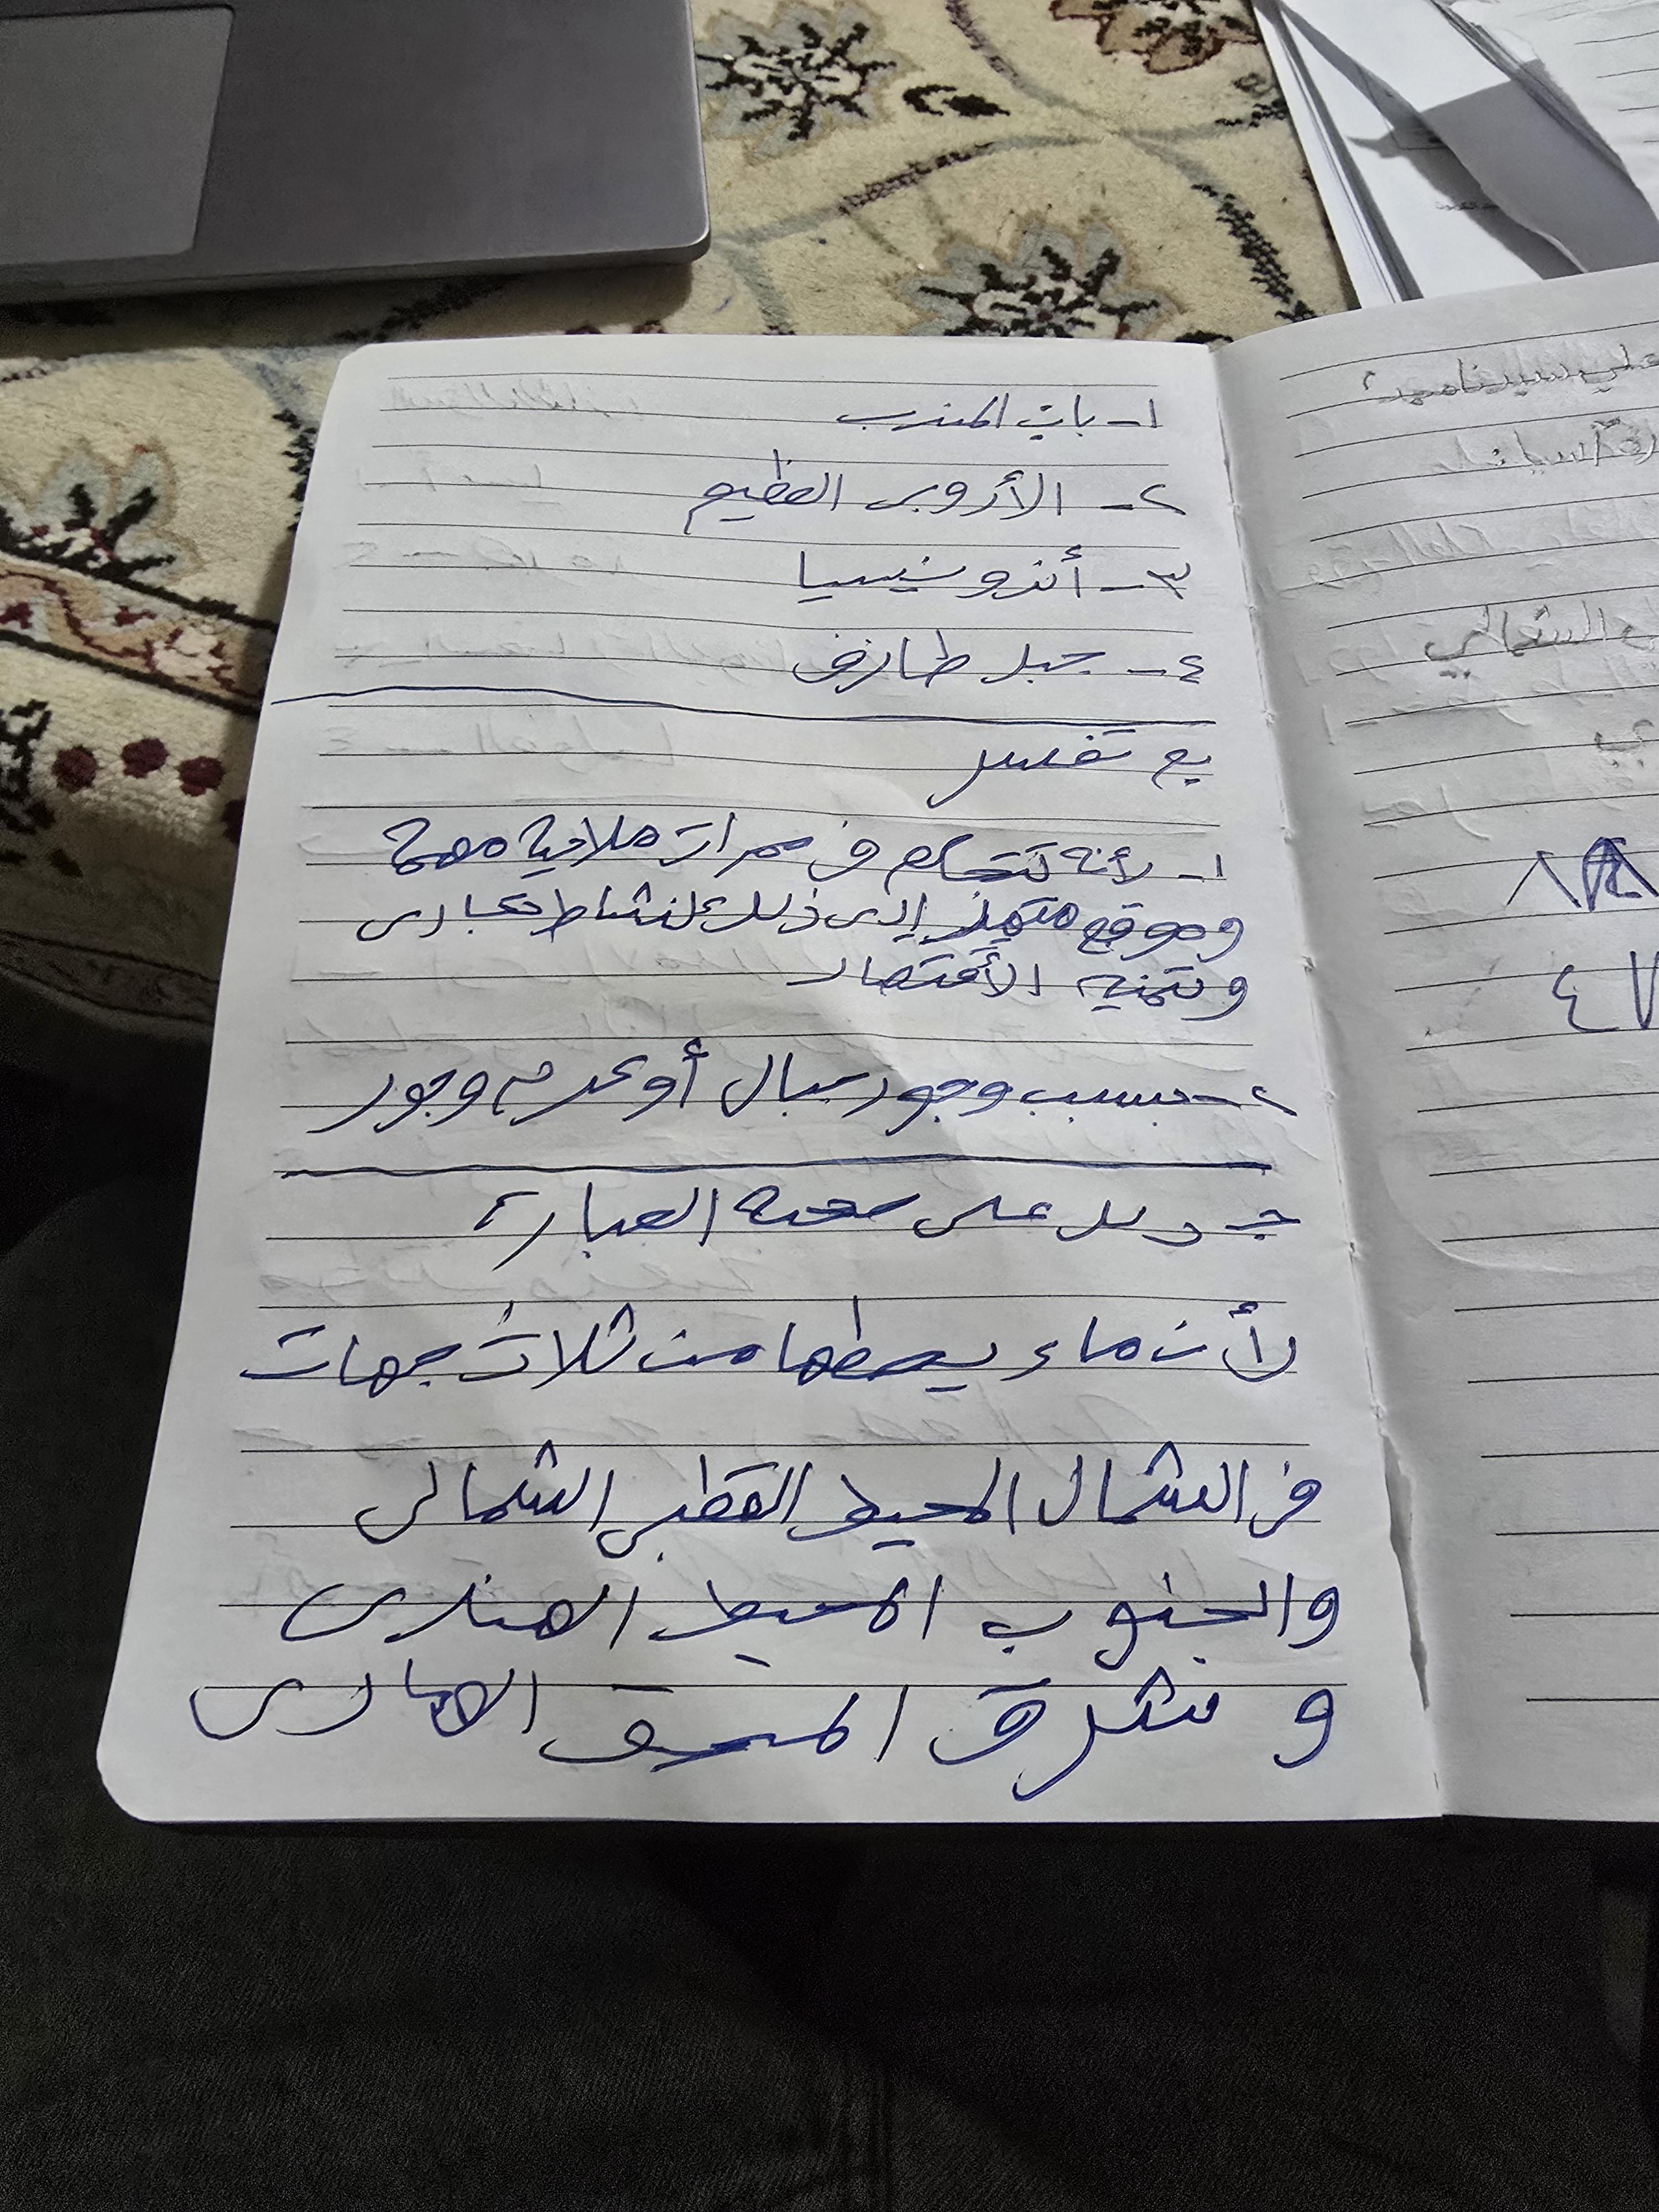 ١- باب المندب
٢- الأروبى العظيم
٣- أندونيسيا
٤- جبل طارق
ب تفسر
١- لأنه تتحكم في ممرات ملاحية مهمة
وموقع متميز إلى ذلك نشاط تجارى
وتنمية الأقتصاد
٢- بسبب وجود جبال أو عدم وجود
جـ دلل على صحة العبارة
لأن ماء يحيطها من ثلاث جهات
في الشمال المحيط القطبي الشمالى
والجنوب المحيط الهندى
و شرق المحيط الهادى
على
الشمالي
٤